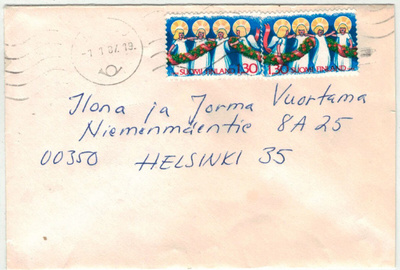 -1.1.87.19.
SUOMI FINLAND 130 1,30 SUOMI FINLAND
Ilona ja Jorma Vuortama
Niemenmäentie 8A25
00350 HELSINKI 35